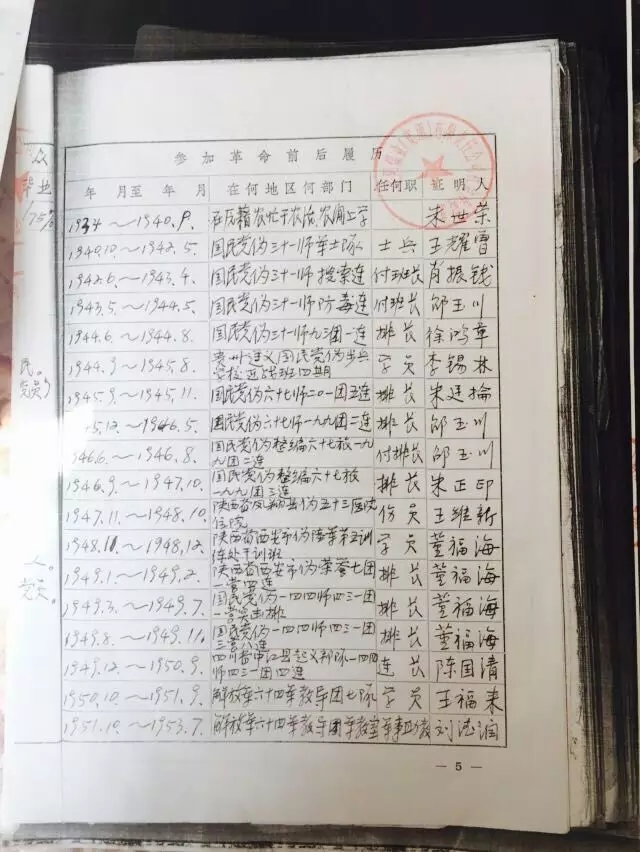 众
毕业
175%
民。
党员)
人。
党员。
参加革命前后履历
年 月至 年 月 在何地区何部门 任何职 证明人
1934～1940.9. 在原籍农忙干农活,农闲上学 朱世荣
1940.10～1942.5. 国民党伪三十一师军士队 士兵 王耀曾
1942.6～1943.4. 国民党伪三十一师搜索连 付班长 肖振钱
1943.5～1944.5. 国民党伪三十一师防毒连 付班长 邰玉川
1944.6～1944.8. 国民党伪三十一师九三团一连 排长 徐鸿章
1944.9～1945.8. 贵州遵义国民党伪步兵
学校 班四期 学员 李锡林
1945.9～1945.11. 国民党伪六十七师二〇一团五连 排长 朱廷抡
5.12～1946.5. 国民党伪六十七师一九九团二连 排长 邰玉川
1946.6～1946.8. 国民党伪整编六十七旅一九
九团二连 付排长 邰玉川
1946.9～1947.10. 国民党伪整编六十七旅
一九九团三连 排长 朱正印
1947.11～1948.10. 陕西省凤翔县伪五十三医院
住院 伤员 王维新
1948.11～1948.12. 陕西省西安市伪陆军第五训
练处干训班 学员 董福海
1949.1～1949.2. 陕西省西安市伪荣誉七团
一营四连 排长 董福海
1949.3～1949.7. 国民党伪一四四师四三一团
突击排 排长 董福海
1949.8～1949.11. 国民党伪一四四师四三一团
三营八连 排长 董福海
1949.12～1950.9. 四川省中江县起义部队一四四
师四三一团四连 连长 陈国清
1950.10～1951.9. 解放军六十四军教导团七队 学员 王福来
1951.10～1953.7. 解放军六十四军教导团军教室 军事助教 刘
— 5 —